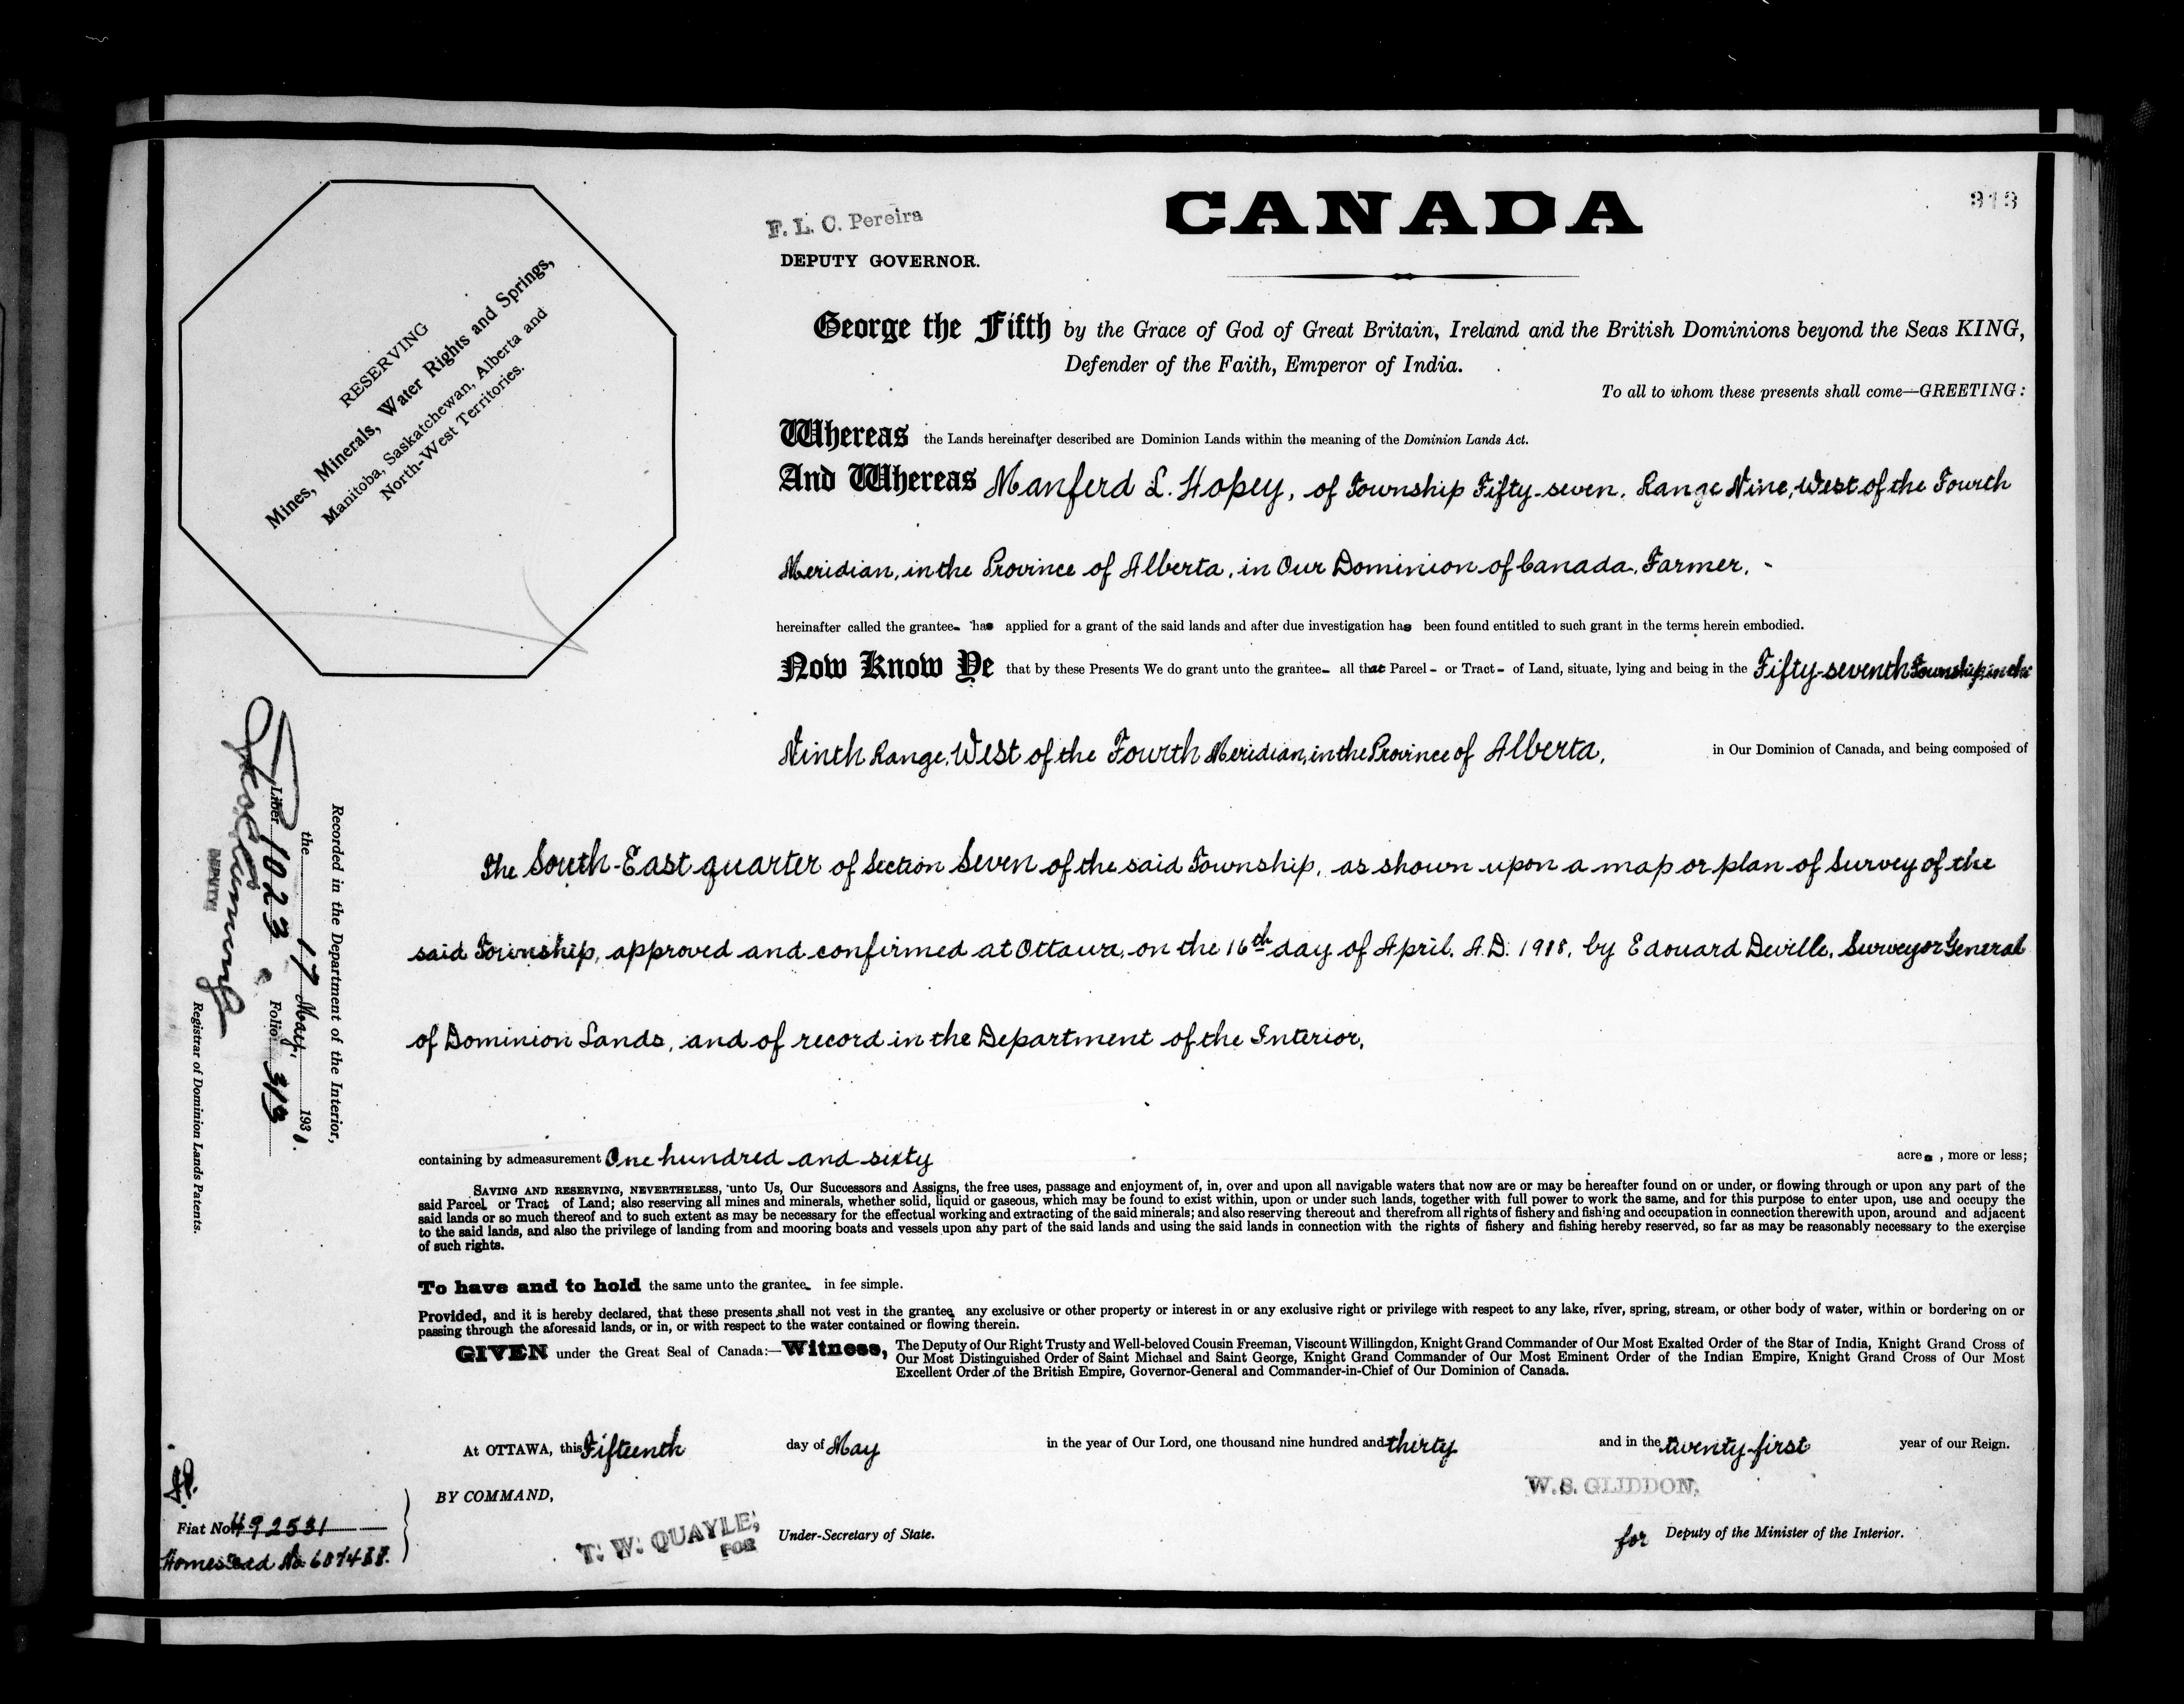 CANADA
313
F. L. C. Pereira
DEPUTY GOVERNOR.
RESERVING
Mines, Minerals, Water Rights and Springs,
Manitoba, Saskatchewan, Alberta and
North-West Territories.
George the Fifth by the Grace of God of Great Britain, Ireland and the British Dominions beyond the Seas KING,
Defender of the Faith, Emperor of India.
To all to whom these presents shall come—GREETING:
Whereas the Lands hereinafter described are Dominion Lands within the meaning of the Dominion Lands Act.
And Whereas Manferd L. Hopey, of Township Fifty-seven, Range Nine, West of the Fourth
Meridian, in the Province of Alberta, in Our Dominion of Canada, Farmer, -
hereinafter called the grantee- has applied for a grant of the said lands and after due investigation has been found entitled to such grant in the terms herein embodied.
Now Know Ye that by these Presents We do grant unto the grantee- all that Parcel - or Tract - of Land, situate, lying and being in the Fifty-seventh Township, in the
Ninth Range, West of the Fourth Meridian, in the Province of Alberta, in Our Dominion of Canada, and being composed of
The South-East quarter of Section Seven of the said Township, as shown upon a map or plan of Survey of the
said Township, approved and confirmed at Ottawa, on the 16th day of April, A.D. 1918, by Edouard Deville, Surveyor General
of Dominion Lands, and of record in the Department of the Interior,
containing by admeasurement One hundred and sixty acres, more or less;
SAVING AND RESERVING, NEVERTHELESS, unto Us, Our Successors and Assigns, the free uses, passage and enjoyment of, in, over and upon all navigable waters that now are or may be hereafter found on or under, or flowing through or upon any part of the
said Parcel or Tract of Land; also reserving all mines and minerals, whether solid, liquid or gaseous, which may be found to exist within, upon or under such lands, together with full power to work the same, and for this purpose to enter upon, use and occupy the
said lands or so much thereof and to such extent as may be necessary for the effectual working and extracting of the said minerals; and also reserving thereout and therefrom all rights of fishery and fishing and occupation in connection therewith upon, around and adjacent
to the said lands, and also the privilege of landing from and mooring boats and vessels upon any part of the said lands and using the said lands in connection with the rights of fishery and fishing hereby reserved, so far as may be reasonably necessary to the exercise
of such rights.
To have and to hold the same unto the grantee- in fee simple.
Provided, and it is hereby declared, that these presents shall not vest in the grantee any exclusive or other property or interest in or any exclusive right or privilege with respect to any lake, river, spring, stream, or other body of water, within or bordering on or
passing through the aforesaid lands, or in, or with respect to the water contained or flowing therein.
GIVEN under the Great Seal of Canada:—Witness, The Deputy of Our Right Trusty and Well-beloved Cousin Freeman, Viscount Willingdon, Knight Grand Commander of Our Most Exalted Order of the Star of India, Knight Grand Cross of
Our Most Distinguished Order of Saint Michael and Saint George, Knight Grand Commander of Our Most Eminent Order of the Indian Empire, Knight Grand Cross of Our Most
Excellent Order of the British Empire, Governor-General and Commander-in-Chief of Our Dominion of Canada.
At OTTAWA, this Fifteenth day of May in the year of Our Lord, one thousand nine hundred and thirty and in the twenty-first year of our Reign.
BY COMMAND,
W. S. GLIDDON,
T. W. QUAYLE,
FOR
Under-Secretary of State.
for Deputy of the Minister of the Interior.
Recorded in the Department of the Interior,
the 17 May, 1930.
Liber 1023 Folio 313
DEPUTY
Registrar of Dominion Lands Patents.
Fiat No 492531
Homestead No.